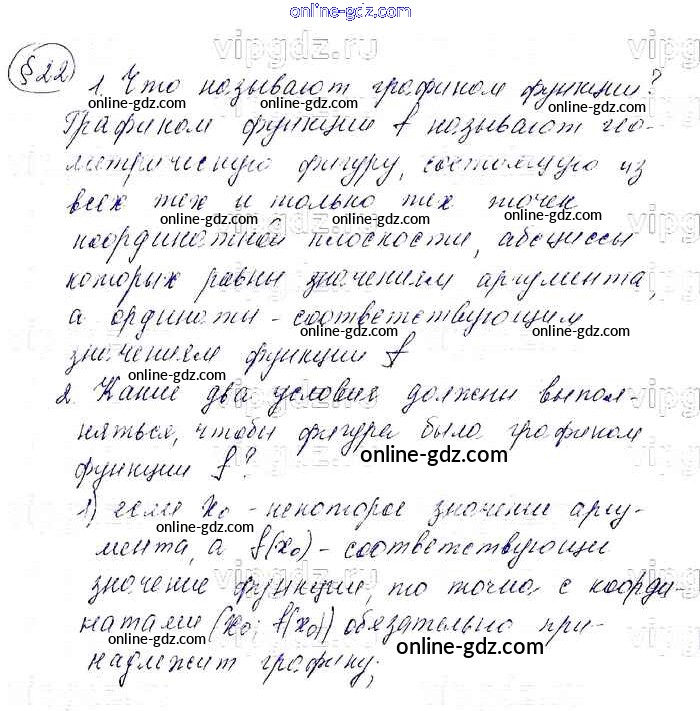 online-gdz.com
online-gdz.com
vipgdz.ru
§22
1. Что называют графиком функции?
online-gdz.com
Графиком функции f называют гео-
метрическую фигуру, состоящую из
online-gdz.com
всех тех и только тех точек
online-gdz.com
координатной плоскости, абсциссы
которых равны значениям аргумента,
online-gdz.com
а ординаты - соответствующим
online-gdz.com
значениям функции f
2. Какие два условия должны выпол-
online-gdz.com
няться, чтобы фигура была графиком
online-gdz.com
функции f?
1) если x₀ - некоторое значение аргу-
online-gdz.com
мента, а f(x₀) - соответствующее
значение функции, то точка с коорди-
online-gdz.com
натами (x₀; f(x₀)) обязательно при-
online-gdz.com
online-gdz.com
надлежит графику;